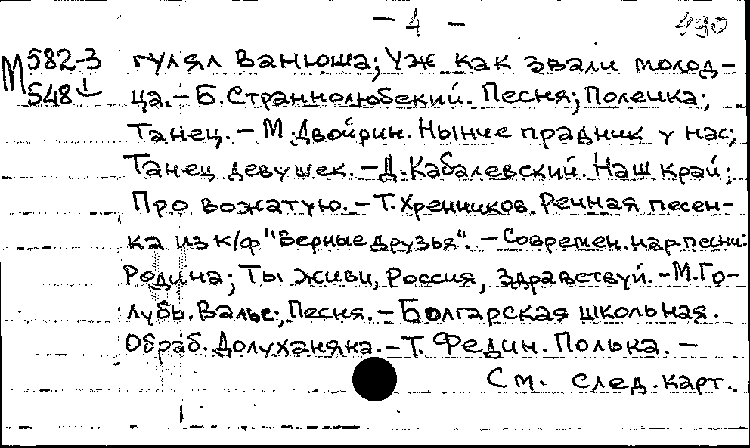 - 4 -
М582-3 гулял Ванюша; Уж как звали молод-
548 ца. - Б. Странполюбский. Песня; Полечка;
Танец. - М. Двойрин. Нынче прадник у нас;
Танец девушек. - Д. Кабалевский. Наш край;
Про вожатую. - Т. Хренников. Речная песен-
ка из к/ф "Верные друзья". - Современ. нар. песни:
Родина; Ты живи, Россия, здравствуй. - М. Го-
лубь. Вальс; Песня. - Болгарская школьная.
Обраб. Долуханяна. - Т. Федин. Полька. -
См. след. карт.